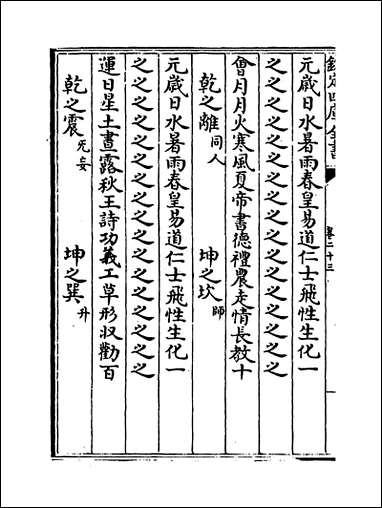 欽定四庫全書
卷二十三
元歳日水暑雨春皇易道仁士飛性生化一
之之之之之之之之之之之之之之之之之
會月月火寒風夏帝書德禮農走情長教十
乾之離同人　坤之坎師
元歳日水暑雨春皇易道仁士飛性生化一
之之之之之之之之之之之之之之之之之
運日星土晝露秋王詩功義工草形収勸百
乾之震无妄　坤之巽升